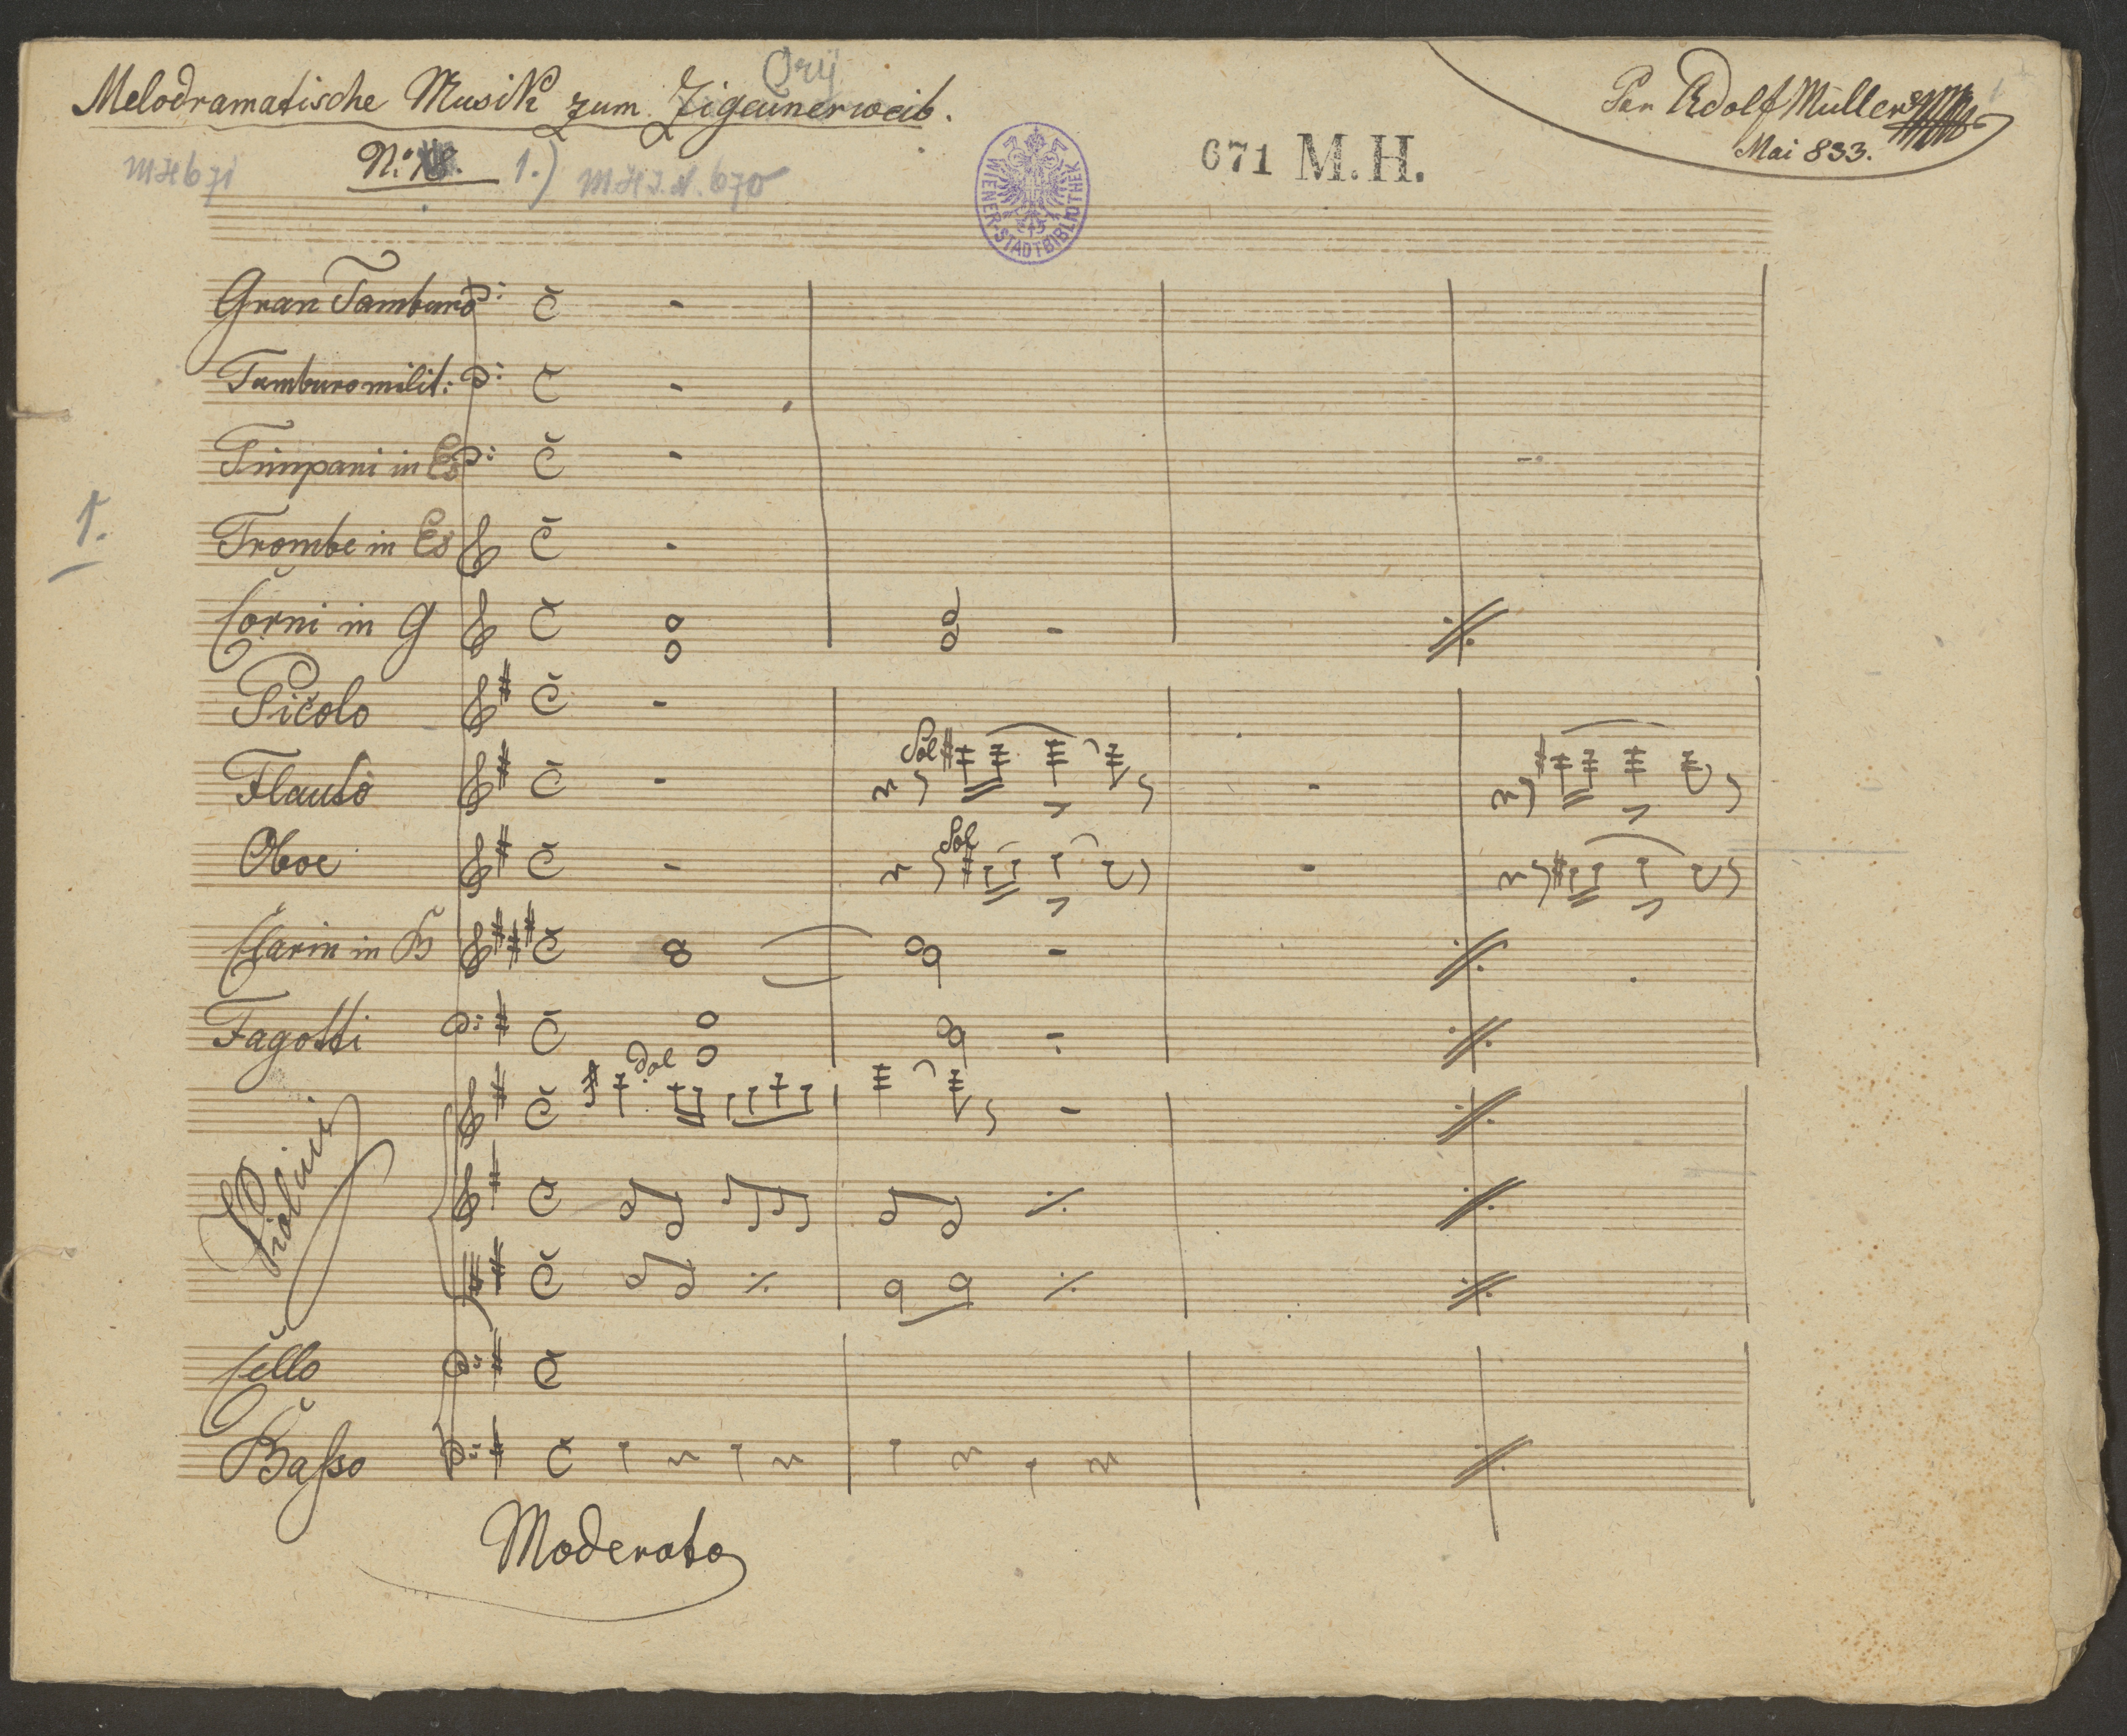 Orij
Melodramatische Musik zum Zigeunerweib.
Per Adolf Müller
Mai 833.
MH 671
No:
1.)
M.H.I.N. 670
WIENER-STADTBIBLIOTHEK
671 M.H.
Gran Tamburo
Tamburo milit:
Timpani in Es
1.
Trombe in Es
Corni in G
Picolo
Flauto
Sol
Oboe
Sol
Clarin in B
Fagotti
Dol
Violini
Cello
Baſso
Moderato